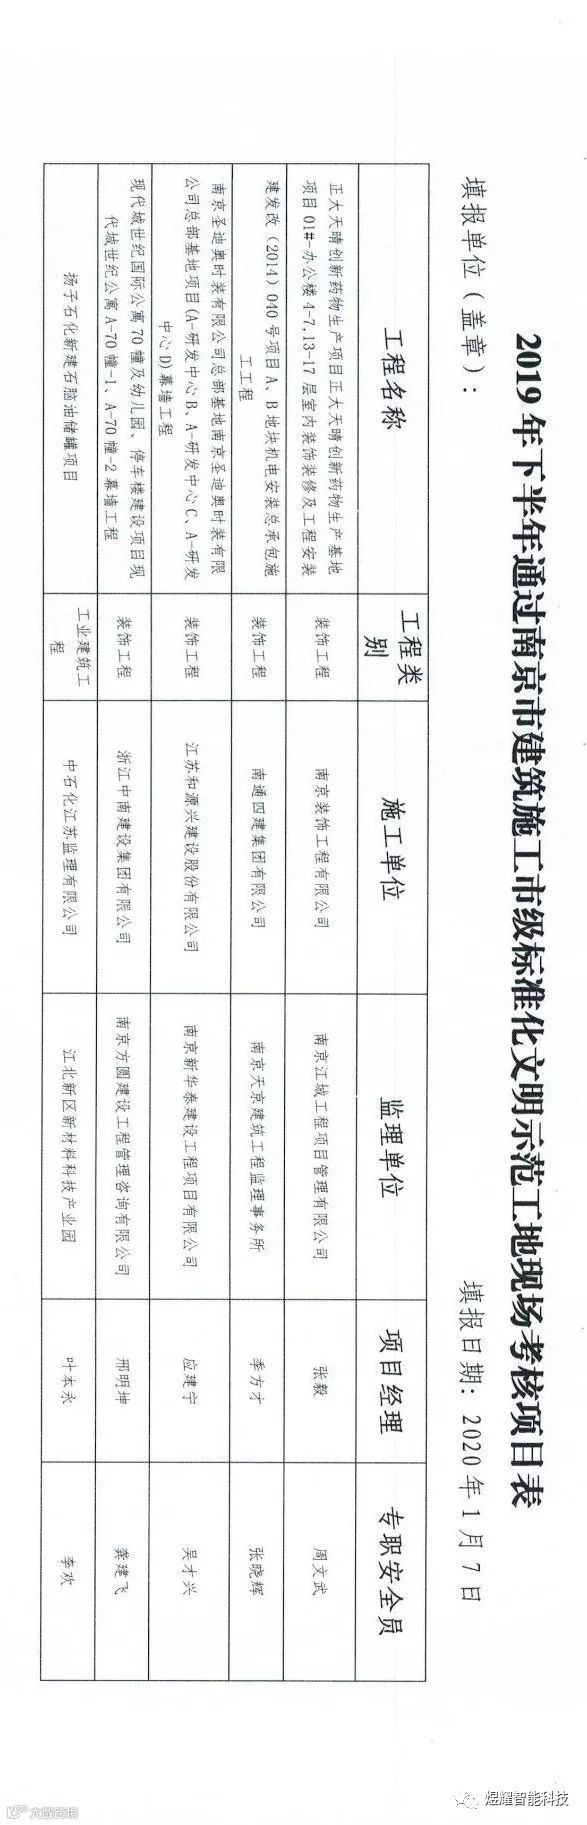 2019年下半年通过南京市建筑施工市级标准化文明示范工地现场考核项目表
填报单位（盖章）：
填报日期：2020年1月7日
工程名称
工程类
别
施工单位
监理单位
项目经理
专职安全员
正大天晴创新药物生产项目正大天晴创新药物生产基地
项目01#-办公楼4-7,13-17层室内装饰装修及工程安装
装饰工程
南京装饰工程有限公司
南京江城工程项目管理有限公司
张毅
周文武
建发改（2014）040号项目A、B地块机电安装总承包施
工工程
装饰工程
南通四建集团有限公司
南京天京建筑工程监理事务所
季方才
张晓辉
南京圣迪奥时装有限公司总部基地南京圣迪奥时装有限
公司总部基地项目(A-研发中心B、A-研发中心C、A-研发
中心D)幕墙工程
装饰工程
江苏和源兴建设股份有限公司
南京新华泰建设工程项目有限公司
应建宁
吴才兴
现代城世纪国际公寓70幢及幼儿园、停车楼建设项目现
代城世纪公寓A-70幢-1、A-70幢-2幕墙工程
装饰工程
浙江中南建设集团有限公司
南京方圆建设工程管理咨询有限公司
邢明坤
龚建飞
扬子石化新建石脑油储罐项目
工业建筑工
程
中石化江苏监理有限公司
江北新区新材料科技产业园
叶本永
李欢
煜耀智能科技